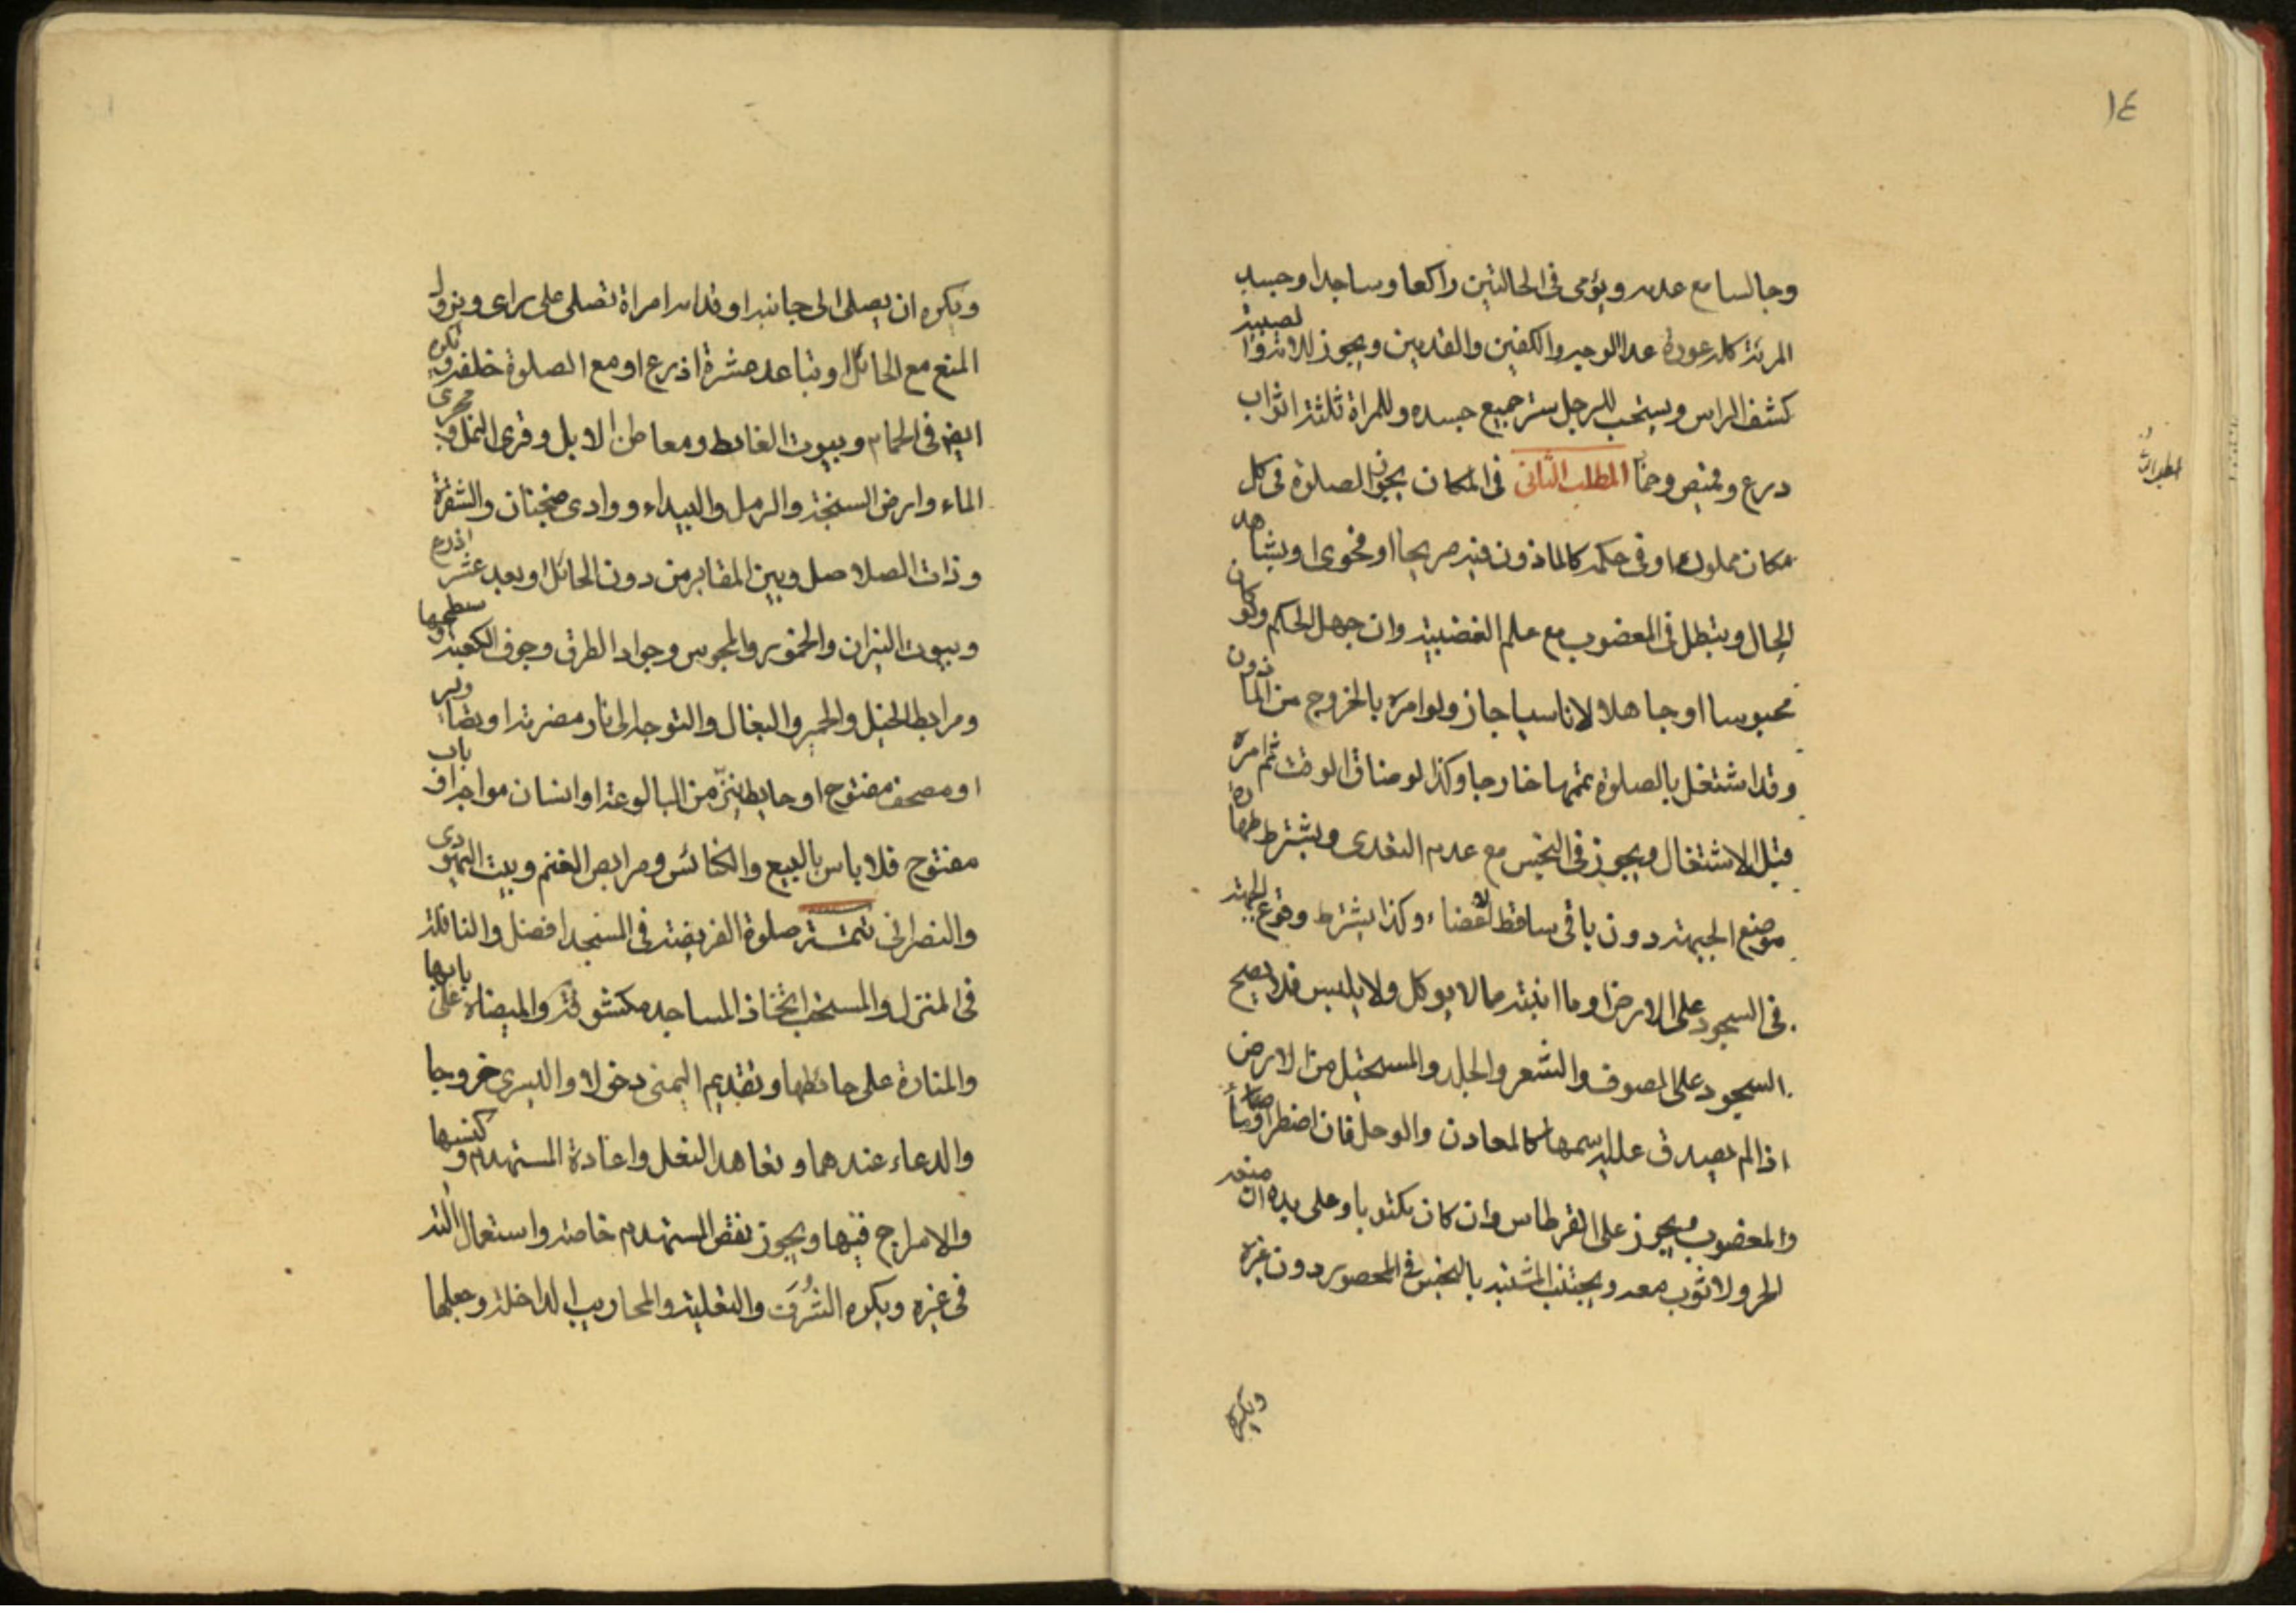 ١٤
وجالسا مع عدمه ويؤمى فى الحالتين راكعا وساجدا وجسد
المرئة كله عورة عدا الوجه والكفين والقدمين ويجوز للامة والصبية
كشف الراس ويستحب للرجل ستر جميع جسده وللمراة ثلثة اثواب
درع وقميص وخمار المطلب الثانى فى المكان يجوز الصلوة فى كل
مكان مملوك او فى حكمه كالماذون فيه صريحا او فحوى او بشاهد
الحال ويبطل فى المغصوب مع علم الغصبية وان جهل الحكم ولو كان
محبوسا او جاهلا لا ناسيا جاز ولو امره بالخروج من الماذون
وقد اشتغل بالصلوة يتمها خارجا وكذا لو ضاق الوقت ثم امره
قبل الاشتغال ويجوز فى النجس مع عدم التعدى ويشترط طهارة
موضع الجبهة دون باقى مساقط الاعضاء وكذا يشترط وقوع الجبهة
فى السجود على الارض او ما انبتته مما لا يوكل ولا يلبس فلا يصح
السجود على الصوف والشعر والجلد والمستحيل من الارض
اذا لم يصدق عليه اسمها كالمعادن والوحل فان اضطر اومأ
والمغصوب ويجوز على القرطاس وان كان مكتوبا وعلى يده ان منعه
الحر ولا ثوب معه ويجتنب المشتبه بالنجس فى المحصور دون غيره
ويكره
ويكره ان يصلى الى جانبه او قدامه امراة تصلى على راى ويزول
المنع مع الحائل او تباعد عشرة اذرع او مع الصلوة خلفه وتكره
ايض فى الحمام وبيوت الغائط ومعاطن الابل وقرى النمل ومجرى
الماء وارض السبخة والرمل والبيداء ووادى ضجنان والشقرة
وذات الصلاصل وبين المقابر من دون الحائل او بعد عشر اذرع
وبيوت النيران والخمور والمجوس وجواد الطرق وجوف الكعبة وسطحها
ومرابط الخيل والحمير والبغال والتوجه الى نار مضرمة او تصاوير
او مصحف مفتوح او حايط ينز من البالوعة او انسان مواجه او باب
مفتوح فلا باس بالبيع والكنائس ومرابض الغنم وبيت اليهودى
والنصرانى تتمة صلوة الفريضة فى المسجد افضل والنافلة
فى المنزل والمستحب اتخاذ المساجد مكشوفة والميضاة على بابها
والمنارة على حائطها وتقديم اليمنى دخولا واليسرى خروجا
والدعاء عندهما وتعاهد النعل واعادة المستهدم وكنسها
والاسراج فيها ويجوز نقض المستهدم خاصة واستعمال الته
فى غيره ويكره الشرف والتعلية والمحاريب الداخلة وجعلها